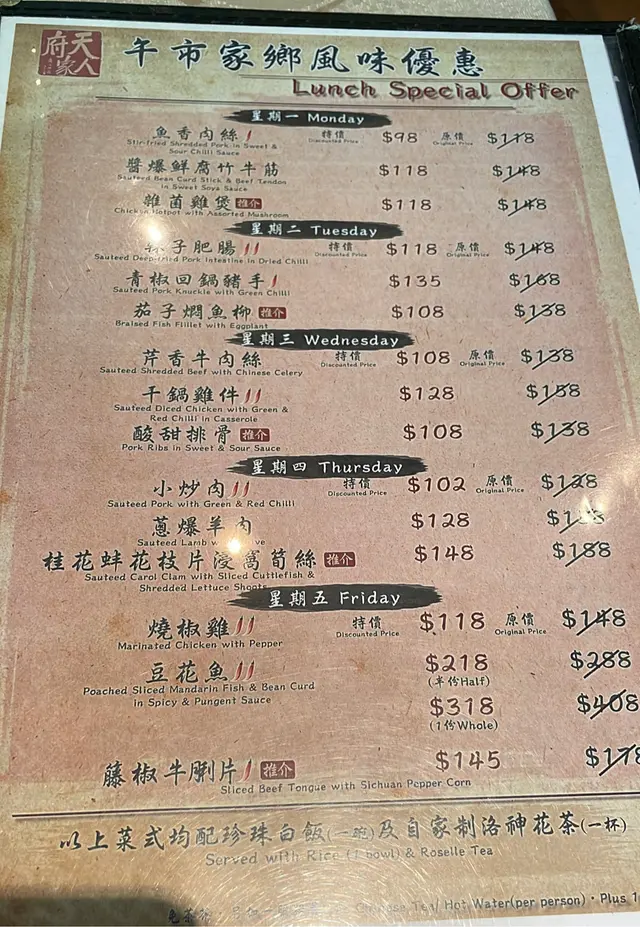 天人
府家
午市家鄉風味優惠
Lunch Special Offer
星期一 Monday
魚香肉絲 特價 $98 原價 $118
Stir-fried Shredded Pork in Sweet & Discounted Price Original Price
Sour Chilli Sauce
醬爆鮮腐竹牛筋 $118 $148
Sauteed Bean Curd Stick & Beef Tendon
in Sweet Soya Sauce
雜菌雞煲 推介 $118 $148
Chicken Hotpot with Assorted Mushroom
星期二 Tuesday
子肥腸 特價 $118 原價 $148
Sauteed Deep-fried Pork Intestine in Dried Chilli Discounted Price Original Price
青椒回鍋豬手 $135 $168
Sauteed Pork Knuckle with Green Chilli
茄子燜魚柳 推介 $108 $138
Braised Fish Fillet with Eggplant
星期三 Wednesday
芹香牛肉絲 特價 $108 原價 $138
Sauteed Shredded Beef with Chinese Celery Discounted Price Original Price
干鍋雞件 $128 $158
Sauteed Diced Chicken with Green &
Red Chilli in Casserole
酸甜排骨 推介 $108 $138
Pork Ribs in Sweet & Sour Sauce
星期四 Thursday
小炒肉 特價 $102 原價 $128
Sauteed Pork with Green & Red Chilli Discounted Price Original Price
蔥爆羊肉 $128
Sauteed Lamb
桂花蚌花枝片浸萵筍絲 推介 $148 $188
Sauteed Carol Clam with Sliced Cuttlefish &
Shredded Lettuce Shoots
星期五 Friday
燒椒雞 特價 $118 原價 $148
Marinated Chicken with Pepper Discounted Price Original Price
豆花魚 $218 $288
(半份Half)
Poached Sliced Mandarin Fish & Bean Curd
in Spicy & Pungent Sauce $318 $408
(1份Whole)
藤椒牛脷片 推介 $145 $178
Sliced Beef Tongue with Sichuan Pepper Corn
以上菜式均配珍珠白飯(一碗)及自家制洛神花茶(一杯)
Served with Rice (1 bowl) & Roselle Tea
Tea/ Hot Water(per person)・Plus